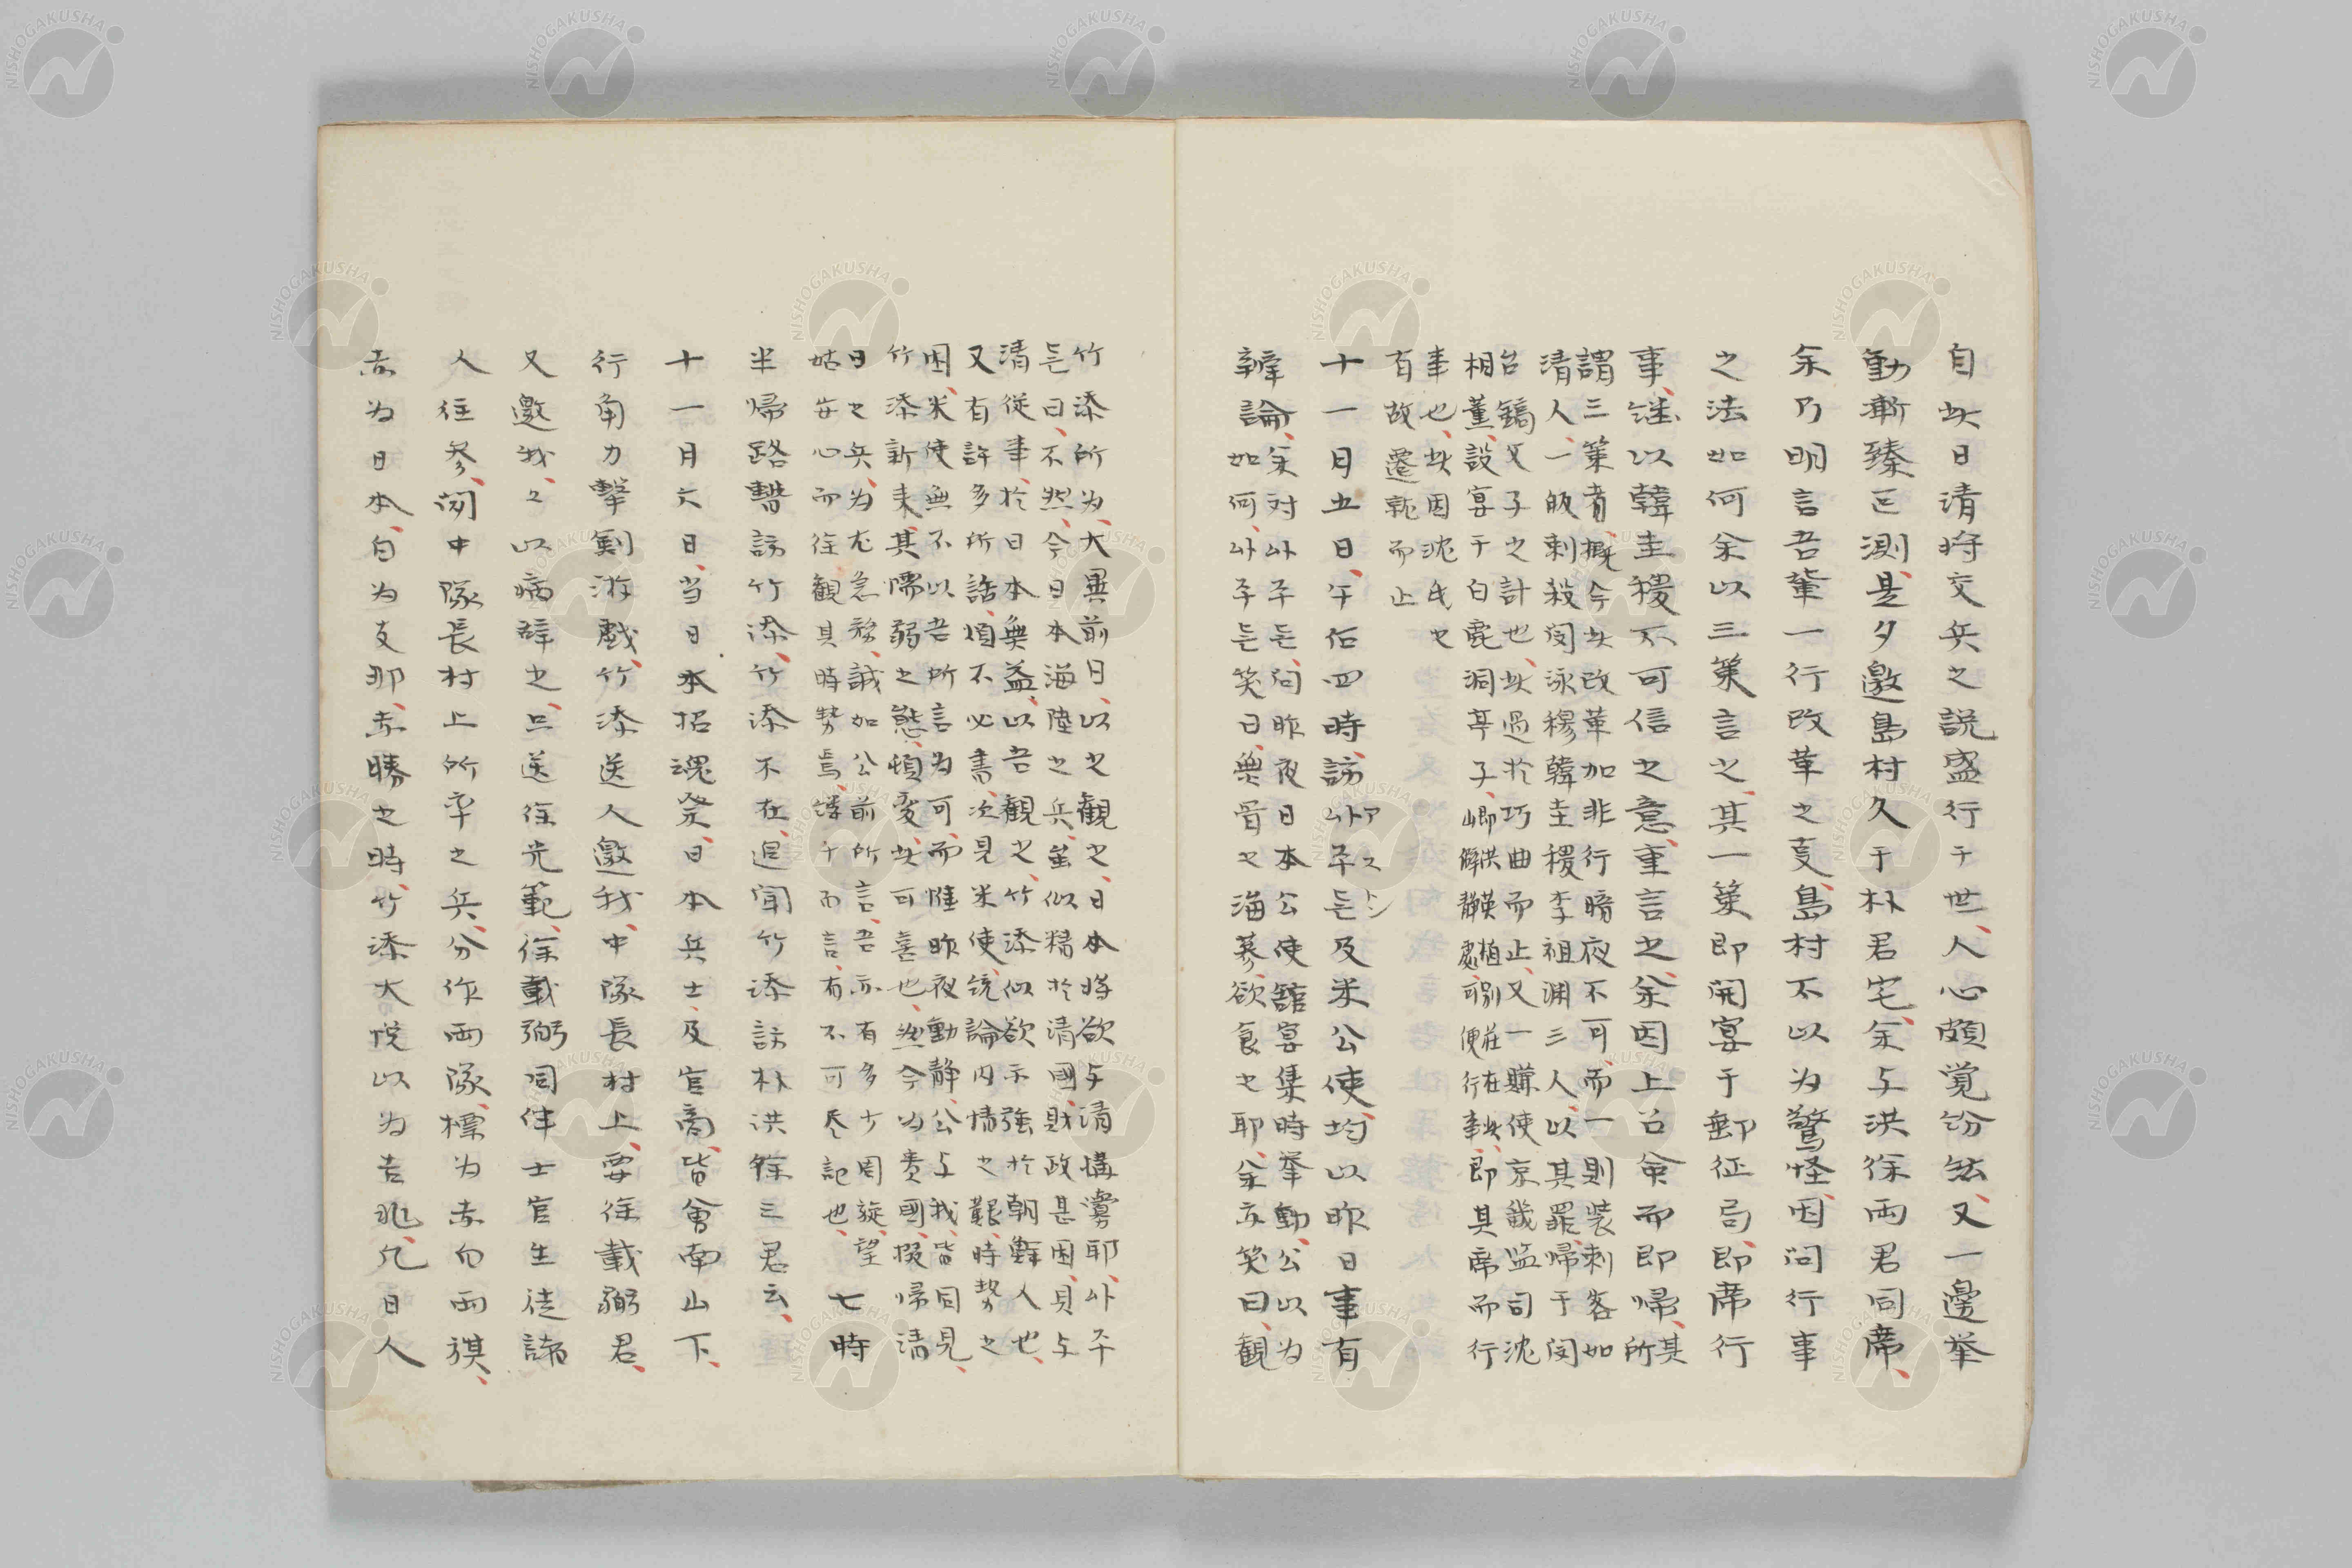 自此日清将交兵之説盛行于世、人心頗覚紛紜、又一邊挙
動漸臻叵測、是夕邀島村久于朴君宅、余与洪徐両君同席、
余乃明言吾輩一行改革之事、島村不以為驚怪、因問行事
之法如何余以三策言之、其一策即開宴于郵征局即席行
事、継以韓圭稷不可信之意、重言之、余因上召命而即帰、其所
謂三策者、概今此改革加非行暗夜不可、而一則装刺客如
清人、一皈刺殺閔泳穆韓圭稷李祖淵三人、以其罪帰于閔
台鎬父子之計也、此過於巧曲而止、又一賺使京畿監司沈
相董、設宴于白鹿洞亭子、卿洪英植別荘在此
僻静處可便行事、即其席而行
事也、此因沈氏之
有故遷就而止
十一月五日、午后四時、訪アストン卟孚듄及米公使、均以昨日事有
辨論、余対卟孚듄、問昨夜日本公使館宴集時挙動、公以為
如何、卟孚듄笑曰、無骨之海蔘欲食之耶、余亦笑曰、観
竹添所為、大異前日、以之観之、日本将欲与清搆釁耶、卟孚
듄曰、不然、今日本海陸之兵、雖似精於清國、財政甚困、貝与
清従事、於日本無益、以吾観之、竹添似欲示強於朝鮮人也、
又有許多所話、煩不必書、次見米使、統論内情之艱、時勢之
困、米使無不以吾所言為可、而惟昨夜動静、公与我皆目見、
竹添新来、其懦弱之態、頓変、此可喜也、然今為貴國、掇帰清
日之兵、為尤急務、誠如公前所言、吾亦有多少周旋、望
姑安心而往観其時勢焉、縷々而言、有不可尽記也、七時
半帰路暫訪竹添、竹添不在、追聞竹添訪朴洪徐三君云、
十一月六日、当日本招魂祭、日本兵士、及官商、皆會南山下、
行角力撃剣游戯、竹添送人邀我、中隊長村上、要徐載弼君、
又邀我、々以病辞之、只送徐光範、徐載弼同伴士官生徒諸
人往参、閲中隊長村上所率之兵、分作両隊、標為赤白両旗、
赤為日本、白為支那、赤勝之時、竹添大悦以為吉兆、凡日人